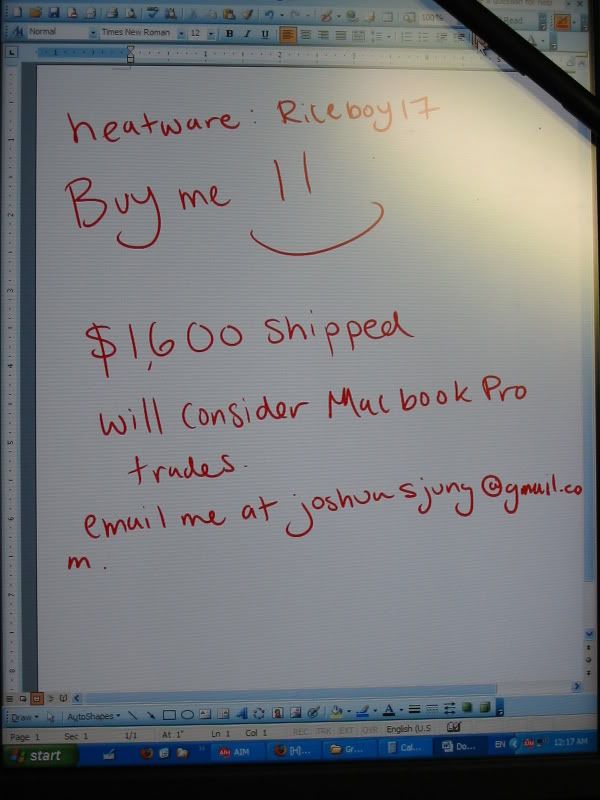 Normal Times New Roman 12 B I U 100% Read
heatware: Riceboy17
Buy me
$1,600 shipped
will consider Macbook Pro
trades.
email me at joshuasjung@gmail.co
m.
Draw AutoShapes
Page 1 Sec 1 1/1 At 1" Ln 1 Col 1 REC TRK EXT OVR English (U.S
start AIM [H]... Gr... Cal... Do... EN 12:17 AM